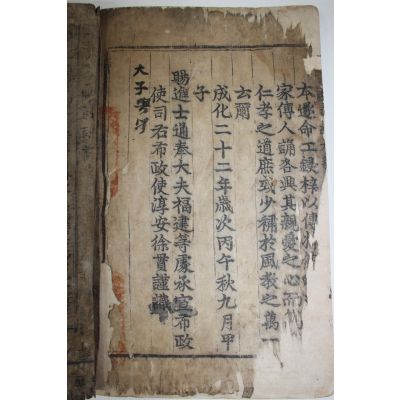 本遂命工鋟梓以傳
家傳人誦各興其親愛之心而
仁孝之道庶或少補於風教之萬一
云爾
成化二十二年歲次丙午秋九月甲
子
賜進士通奉大夫福建等處承宣布政
使司右布政使淳安徐貫謹識